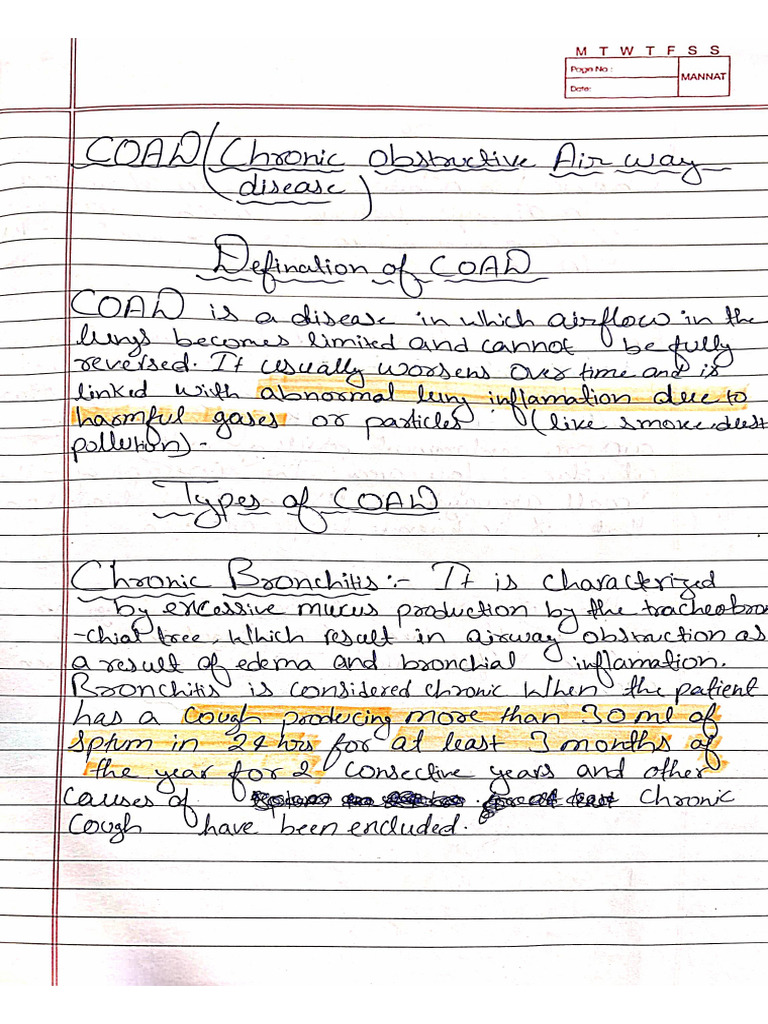 M T W T F S S
Page No :
MANNAT
Date:
COAD (Chronic Obstructive Air way
disease)
Defination of COAD
COAD is a disease in which airflow in the
lungs becomes limited and cannot be fully
reversed. It usually worsens over time and is
linked with abnormal lung inflamation due to
harmful gases or particles (like smoke, dust
pollution).
Types of COAD
Chronic Bronchitis :- It is characterized
by excessive mucus production by the tracheobron
-chial tree, which result in airway obstruction as
a result of edema and bronchial inflamation.
Bronchitis is considered chronic when the patient
has a cough producing more than 30 ml of
sptum in 24 hrs for at least 3 months of
the year for 2 consective years and other
causes of chronic
cough have been encluded.